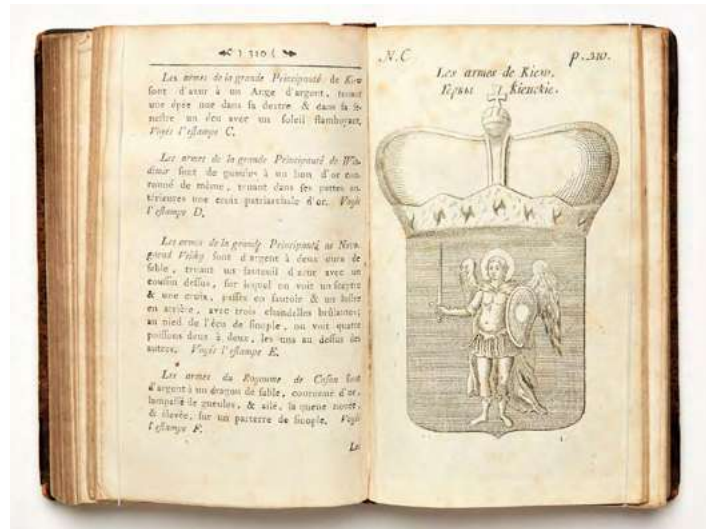 ( 310 (
Les armes de la grande Principauté de Kiew
sont d'azur à un Ange d'argent, tenant
une épée nue dans sa dextre & dans sa se-
nestre un écu avec un soleil flamboyant.
Voyés l'estampe C.
Les armes de la grande Principauté de Wla-
dimir sont de gueules à un lion d'or cou-
ronné de même, tenant dans ses pattes an-
térieures une croix patriarchale d'or. Voyés
l'estampe D.
Les armes de la grande Principauté de Novo-
gorod Veliky sont d'argent à deux ours de
sable, tenant un fauteuil d'azur avec un
coussin dessus, sur lequel on voit un sceptre
& une croix, passés en sautoir & un lustre
en arrière, avec trois chandelles brûlantes;
au pied de l'écu de sinople, on voit quatre
poissons deux à deux, les uns au dessus des
autres. Voyés l'estampe E.
Les armes du Royaume de Casan sont
d'argent à un dragon de sable, couronné d'or,
lampassé de gueules, & ailé, la queue nouée,
& élevée, sur un parterre de sinople. Voyés
l'estampe F.
Les
N. C p. 310.
Les armes de Kiew.